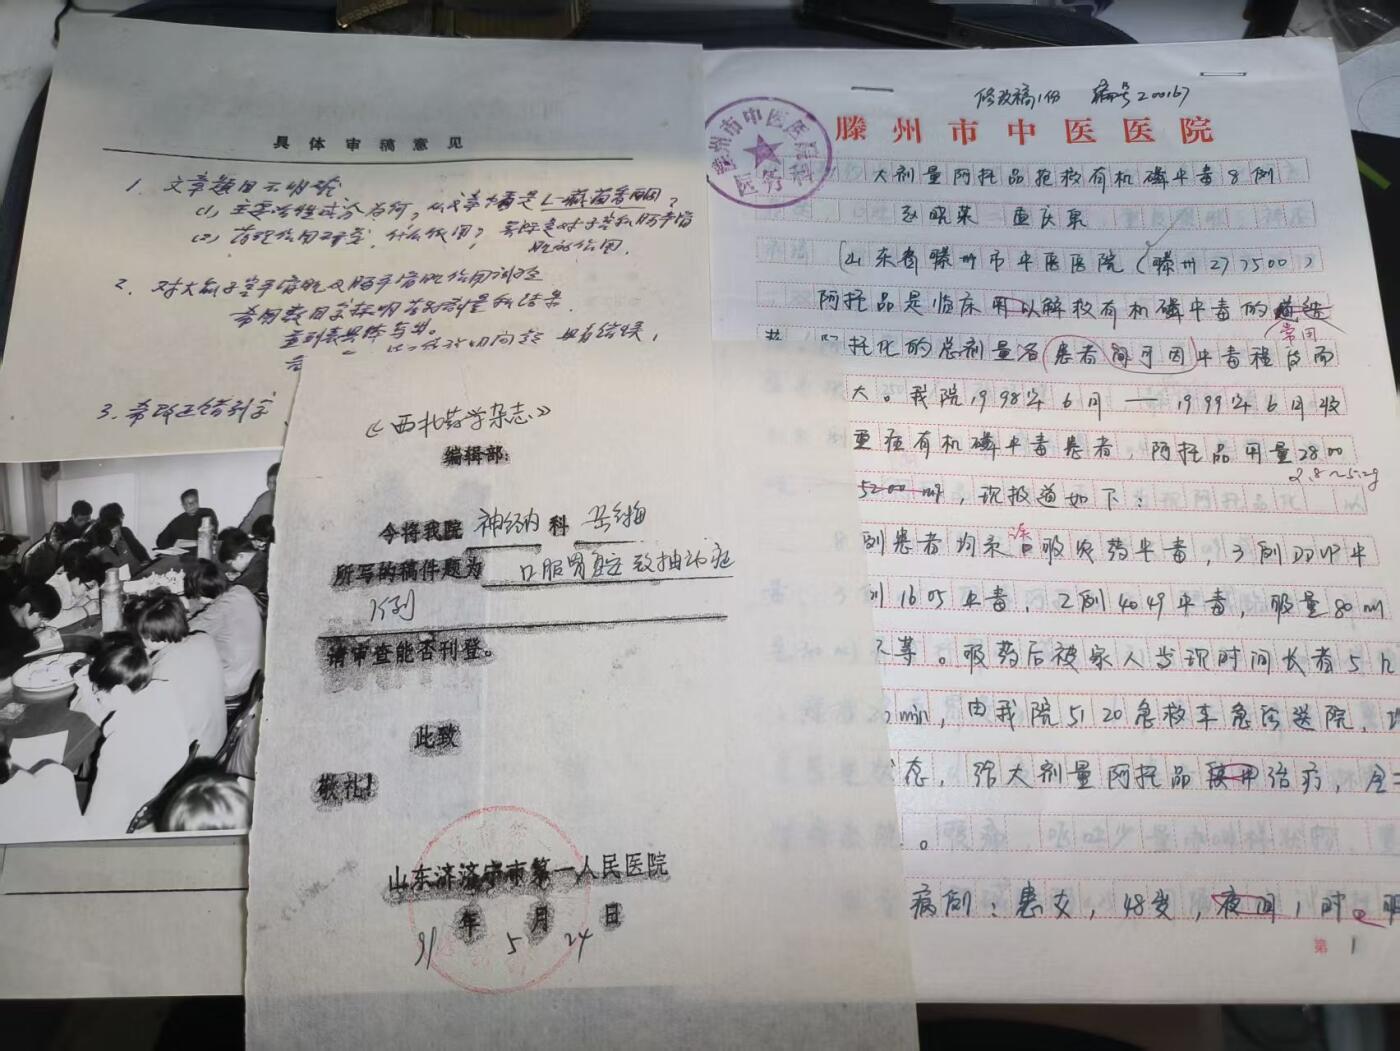 具体审稿意见
1. 文章题目不明确
(1) 主要活性成分为何，从文章中看是L-藏茴香酮？
(2) 药理作用
2. 对大鼠子宫平滑肌及肠平滑肌作用试验
希用数目字标明药剂量和结果
3. 希改正错别字
《西北药学杂志》
编辑部：
今将我院 神经内 科
所写的稿件题为 口服胃复安致抽
1例
请审查能否刊登。
此致
敬礼！
山东济济宁市第一人民医院
91年5月24日
修改稿1份 编号200167
滕州市中医医院
滕州市中医医院
医务科
大剂量阿托品抢救有机磷中毒8例
(山东省滕州市中医医院(滕州277500)
阿托品是临床用以解救有机磷中毒的
常用
阿托化的总剂量 患者 可因中毒程度而
大。我院1998年6月—1999年6月收
重症有机磷中毒患者，阿托品用量2800
2.8~5.2g
5200mg，现报道如下：
例患者均系口服农药中毒，3例DDVP中
1605中毒，2例4049中毒，服量80ml
不等。服药后被家人发现时间长者5h
min，由我院5120急救车急诊送院，
态，给大剂量阿托品 治疗，
病例：患女，48岁，夜间1时
第 1